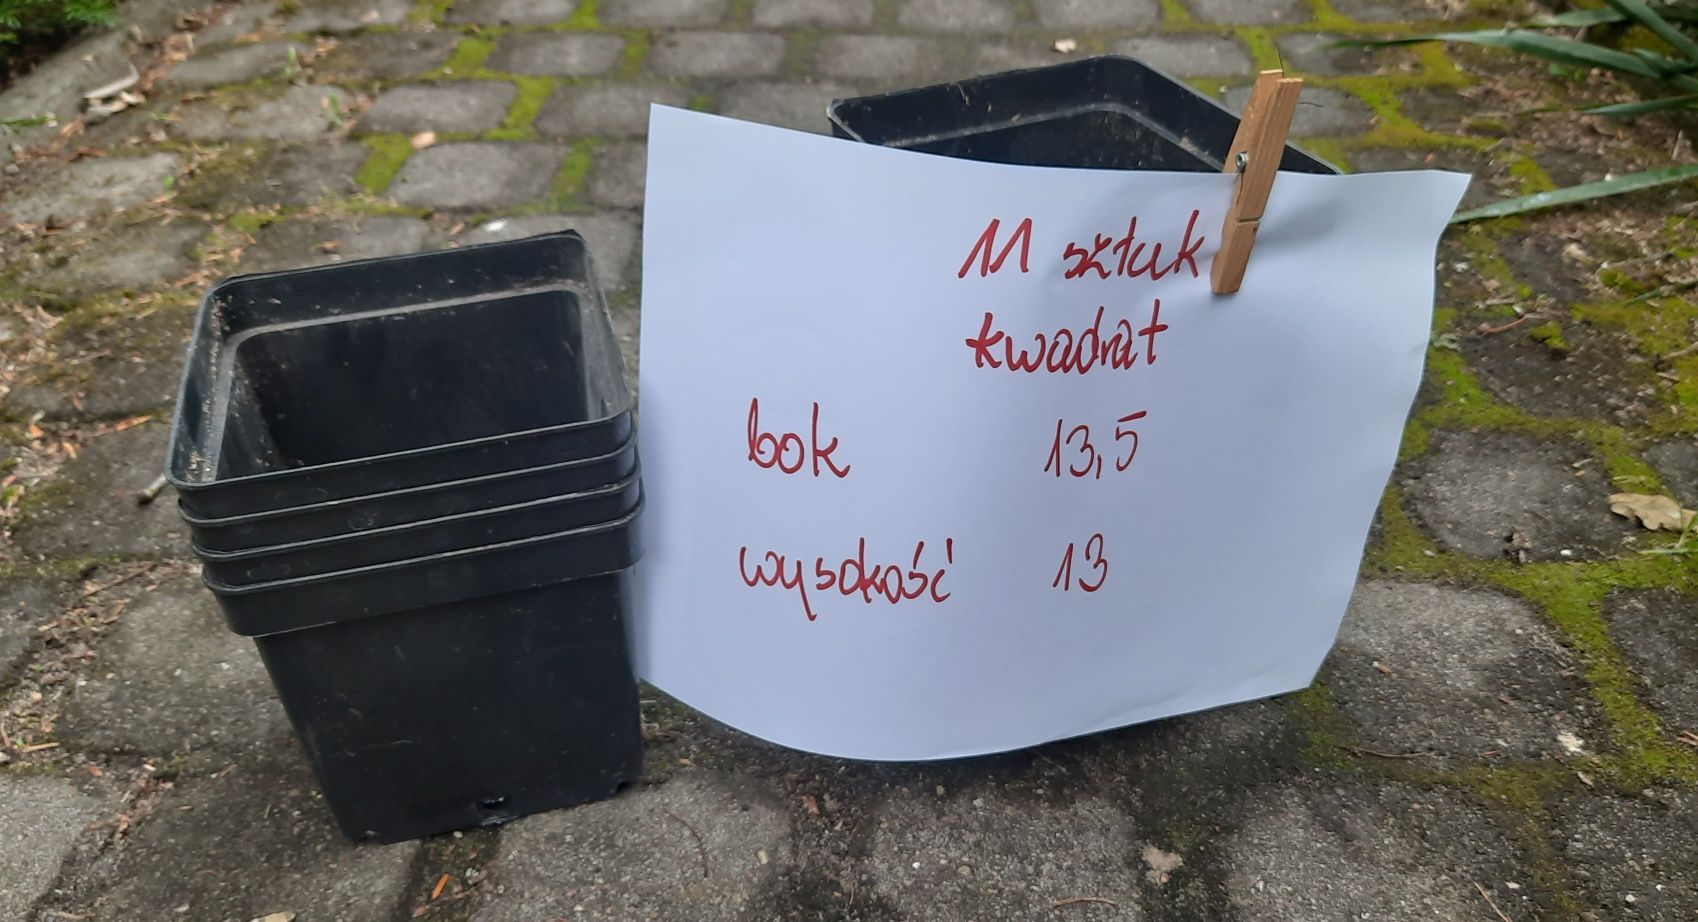 11 sztuk
kwadrat
bok 13,5
wysokość 13